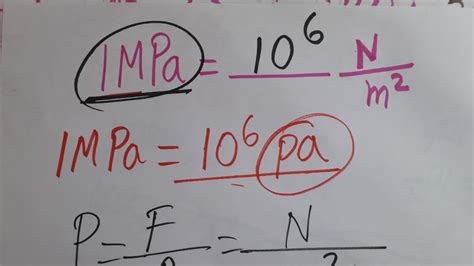 1MPa = 10⁶ N/m²
1MPa = 10⁶ pa
P = F = N